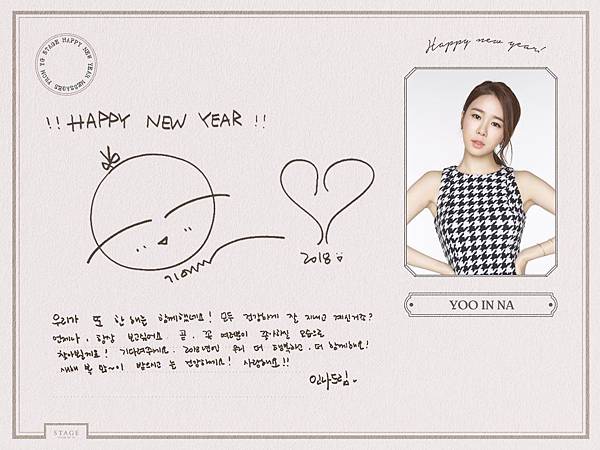 YG STAGE HAPPY NEW YEAR MESSAGES FROM
Happy new year!
!! HAPPY NEW YEAR !!
2018
YOO IN NA
우리가 또 한 해를 함께했네요! 모두 건강하게 잘 지내고 계신거죠?
언제나, 항상 보고싶어요. 곧, 꼭 여러분이 좋아하실 모습으로
찾아뵐게요! 기다려주세요. 2018년엔 우리 더 행복하고, 더 함께해요!
새해 복 많~이 받으시고 늘 건강하세요! 사랑해요!!
인나드림.
STAGE